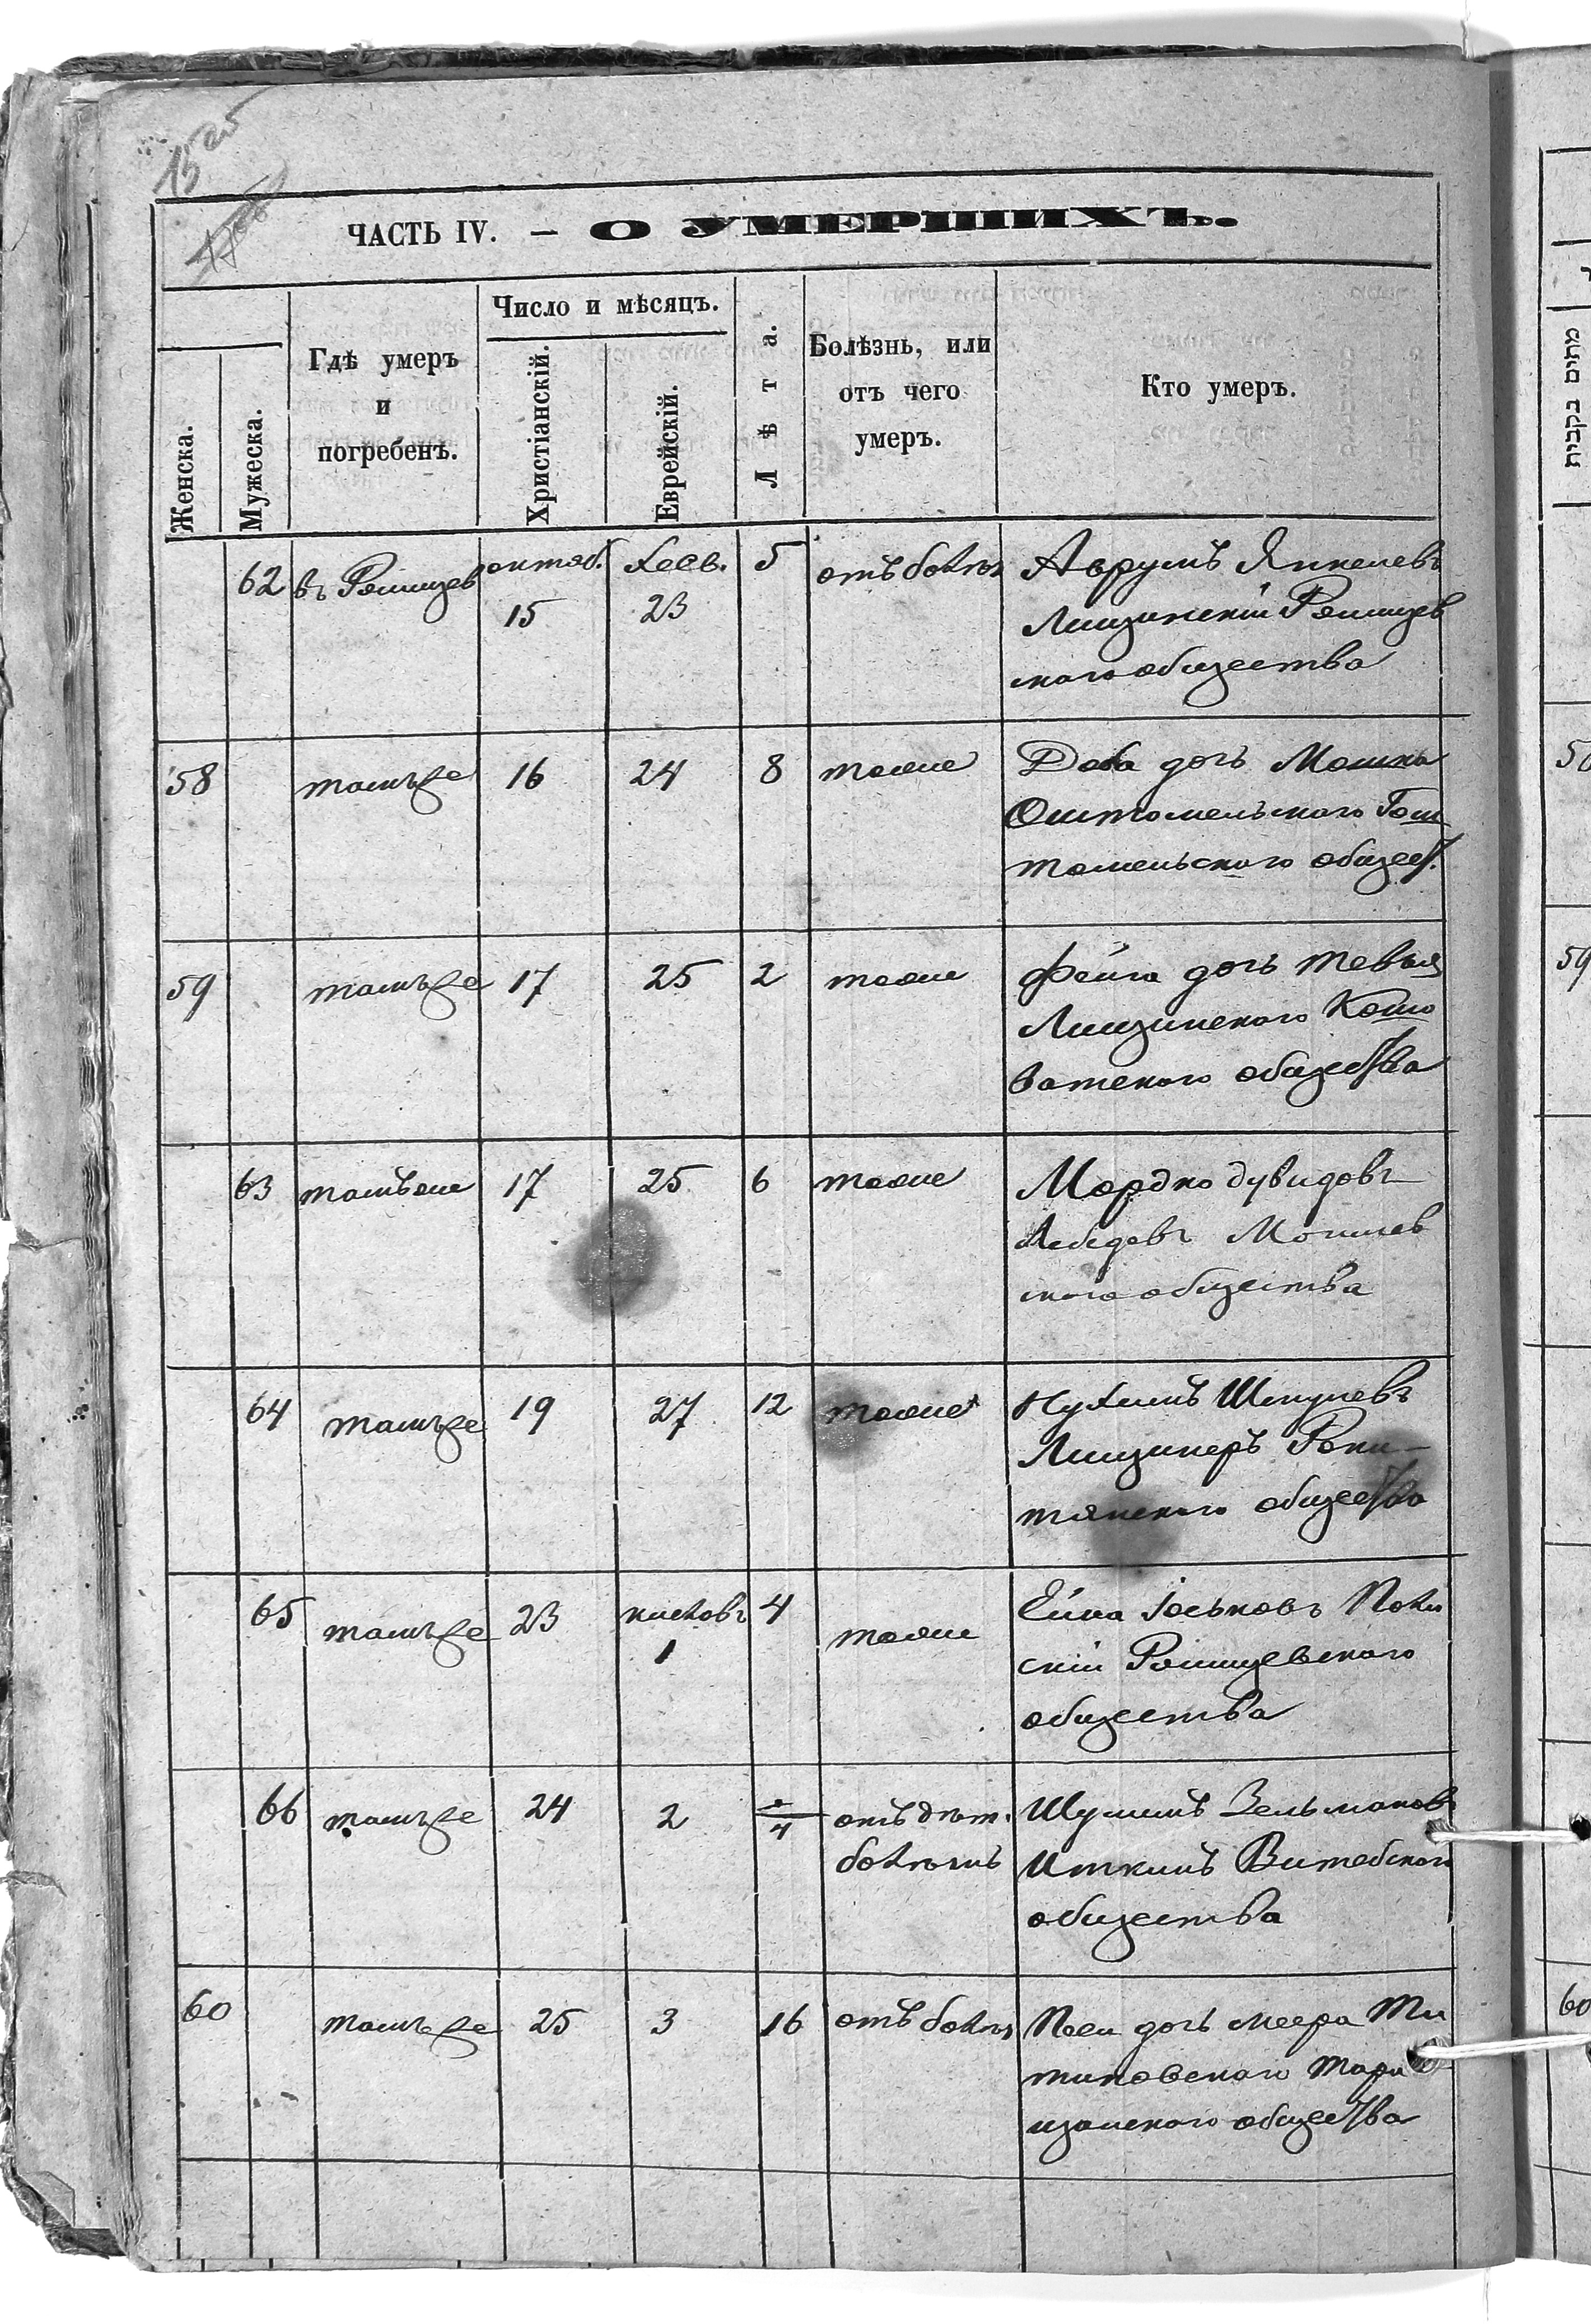 15 об
ЧАСТЬ IV. — О УМЕРШИХЪ.
Женска.
Мужеска.
Гдѣ умеръ
и
погребенъ.
Число и мѣсяцъ.
Христіанскій.
Еврейскій.
Лѣта.
Болѣзнь, или
отъ чего
умеръ.
Кто умеръ.
מתים בקבית
62 въ Ржищев октяб. Хесв. 5 отъ болѣз Аврумъ Янкелевъ
15 23 Лищинскій Ржищев
скаго общества
58 тамъже 16 24 8 тоже Доба дочь Мошка
Оштомельскаго Гош
томельскаго общест.
59 тамъже 17 25 2 тоже Фейга дочь Тевья
Лищинскаго Кошо
ватскаго общества
63 тамъже 17 25 6 тоже Мордко Дувидовъ
Лебедевъ Могилев
скаго общества
64 тамъже 19 27 12 тоже Нухимъ Шмулевъ
Лищинеръ Раки-
тянскаго общества
65 тамъже 23 кислевъ 4 тоже Іоськовъ
1 скій Ржищевскаго
общества
66 тамъже 24 2 4 отъ дѣт. Шулимъ Зельмановъ
болѣзнъ Иткинъ Витебскаго
общества
60 тамъже 25 3 16 отъ болѣз Песи дочь Меера Ти
тиновскаго Тара
щанскаго общества
58
59
60